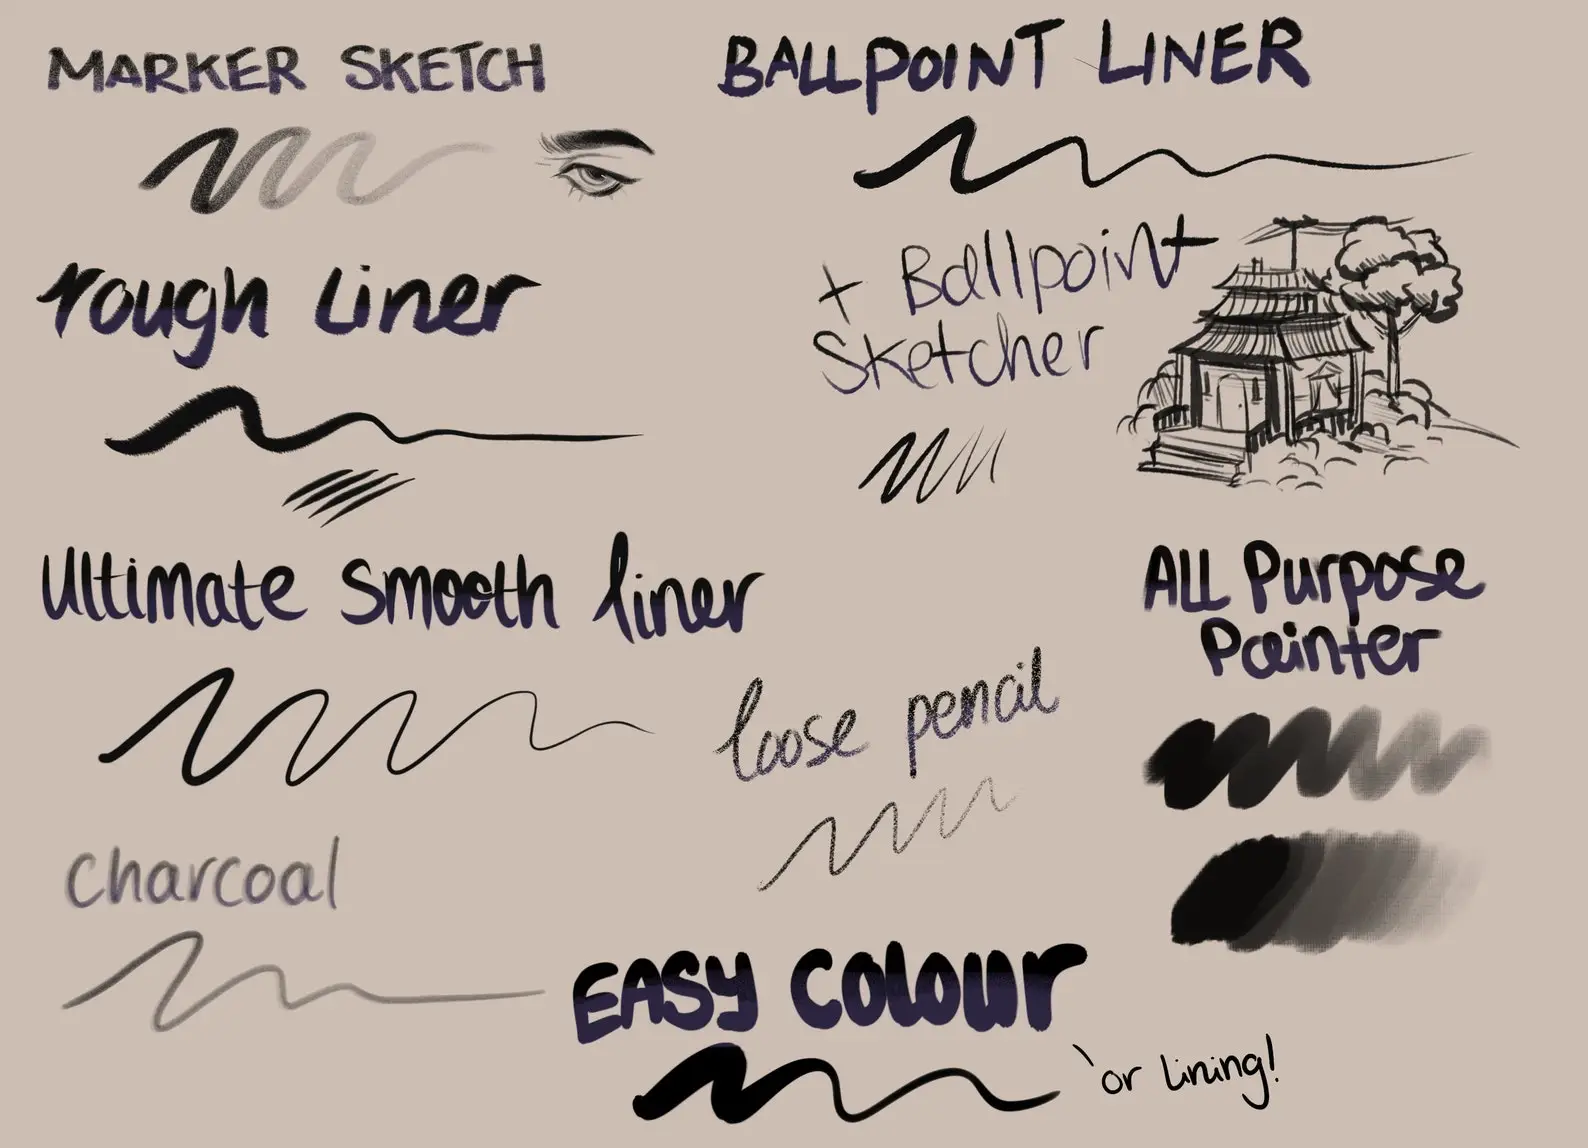 MARKER SKETCH
BALLPOINT LINER
+ Ballpoint
Sketcher
rough Liner
Ultimate Smooth liner
ALL Purpose
Painter
loose pencil
charcoal
EASY COLOUR
`or lining!